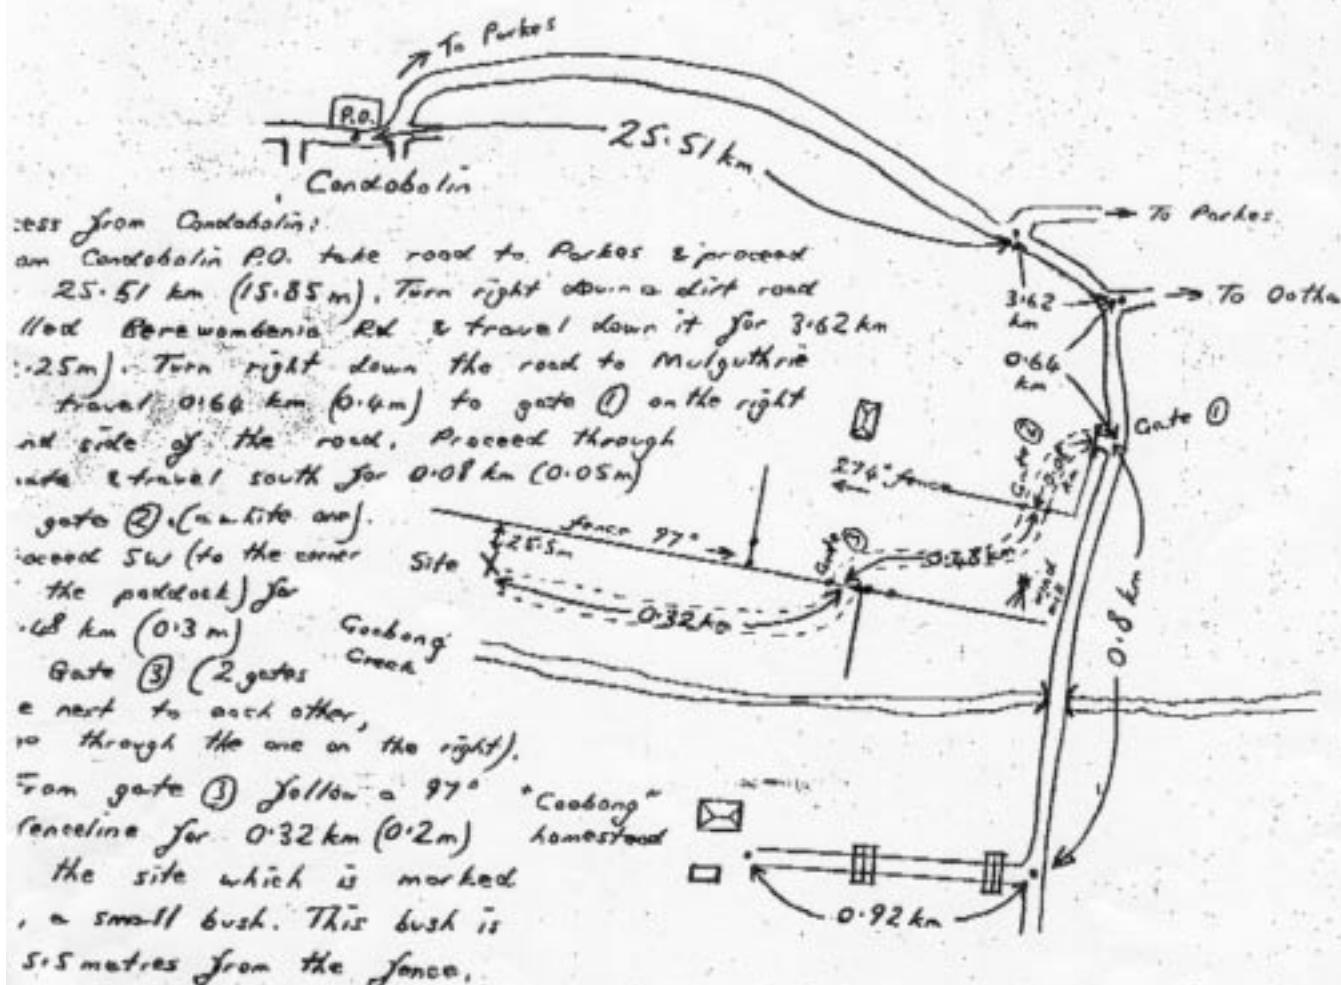 To Parkes
P.O.
25.51 km
Condobolin
To Parkes
cess from Condobolin:
om Condobolin P.O. take road to Parkes & proceed
25.51 km (15.85m). Turn right down a dirt road
lled Berewombenia Rd & travel down it for 3.62 km
.25m). Turn right down the road to Mulguthrie
travel 0.64 km (0.4m) to gate ① on the right
nd side of the road. Proceed through
& travel south for 0.08 km (0.05m)
gate ②. (a white one).
oceed SW (to the corner
the paddock) for
.48 km (0.3m)
Gate ③ (2 gates
e next to each other,
through the one on the right).
From gate ③ follow a 97°
fenceline for 0.32 km (0.2m)
the site which is marked
, a small bush. This bush is
5.5 metres from the fence.
3.62
km
To Ootha
0.64
km
Gate ①
Gate ②
274° fence
fence 97°
Gate ③
25.5m
Site
0.48 km
0.32 km
wind
mill
Goobong
Creek
0.8 km
"Coobong"
homestead
0.92 km